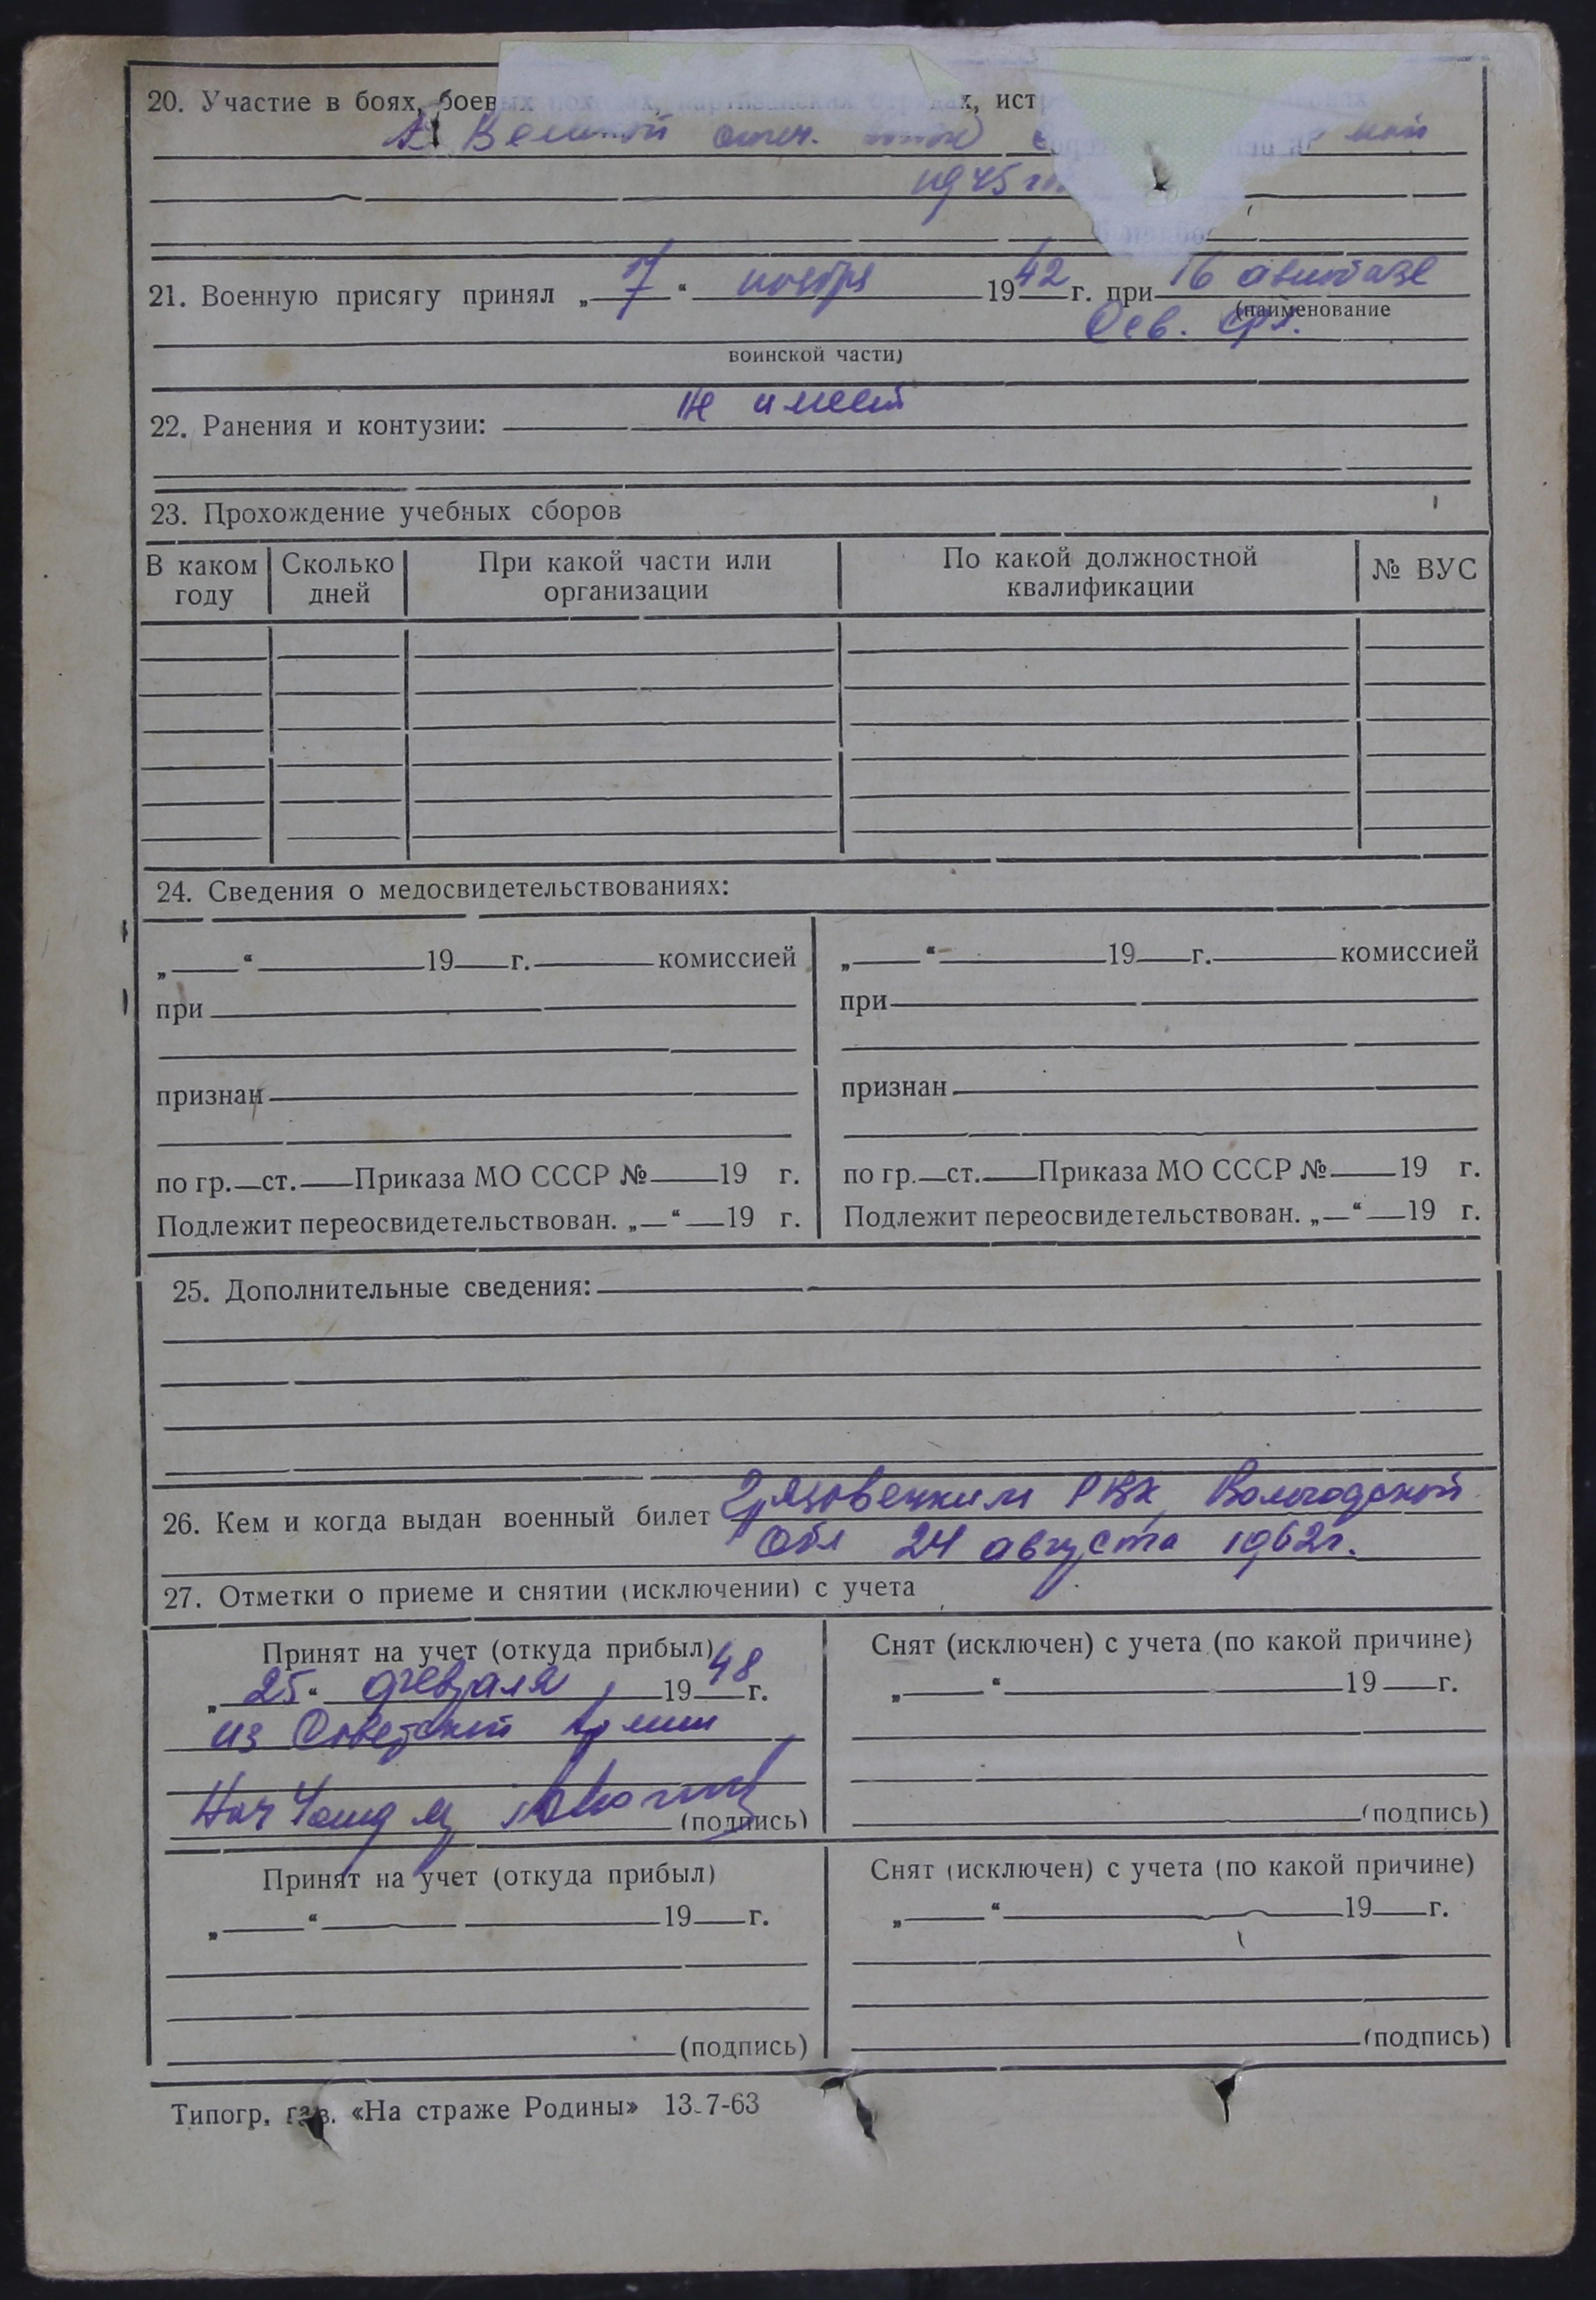 20. Участие в боях, боевых
В Великой отеч. май
1945
21. Военную присягу принял „ 7 “ ноября 1942 г. при 16 авиабазе
(наименование
воинской части)
22. Ранения и контузии: не имеет
23. Прохождение учебных сборов
В каком году | Сколько дней | При какой части или организации | По какой должностной квалификации | № ВУС
24. Сведения о медосвидетельствованиях:
„ “ 19 г. комиссией
при
признан
по гр. ст. Приказа МО СССР № 19 г.
Подлежит переосвидетельствован. „ “ 19 г.
„ “ 19 г. комиссией
при
признан
по гр. ст. Приказа МО СССР № 19 г.
Подлежит переосвидетельствован. „ “ 19 г.
25. Дополнительные сведения:
26. Кем и когда выдан военный билет Грязовецким РВК Вологодской
Обл 24 августа 1962г.
27. Отметки о приеме и снятии (исключении) с учета
Принят на учет (откуда прибыл)
„ 25 “ февраля 1948 г.
из Советской Армии
Нач
(подпись)
Снят (исключен) с учета (по какой причине)
„ “ 19 г.
(подпись)
Принят на учет (откуда прибыл)
„ “ 19 г.
(подпись)
Снят (исключен) с учета (по какой причине)
„ “ 19 г.
(подпись)
Типогр. газ. «На страже Родины» 13-7-63